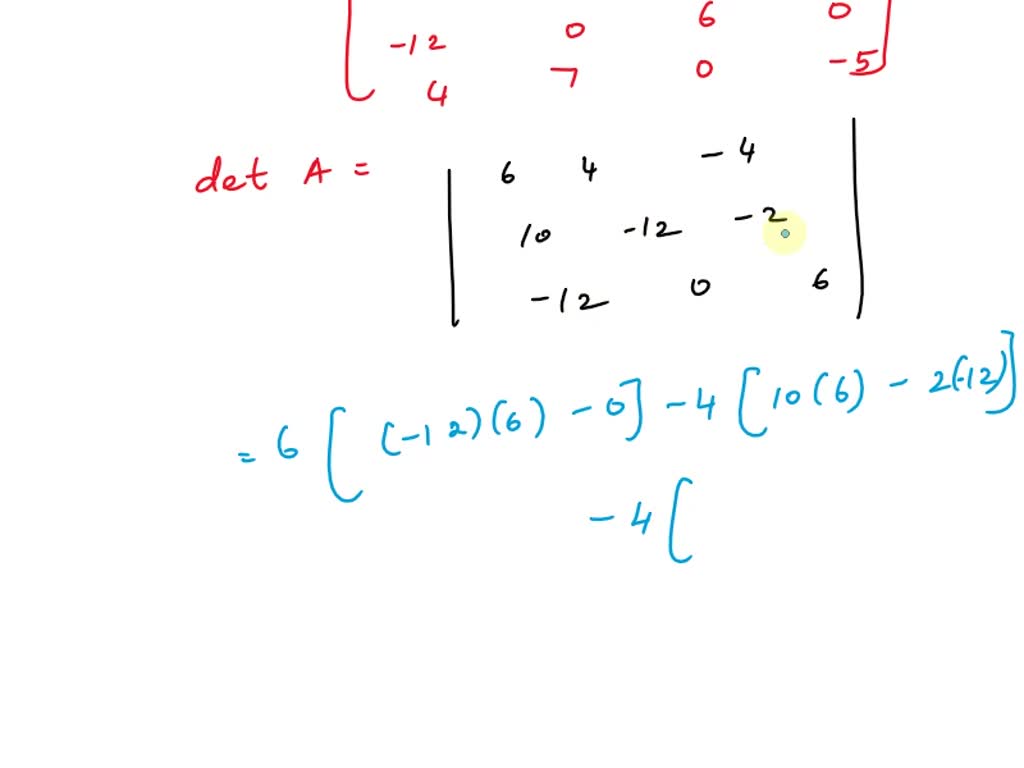 -12 0 6 0
4 7 0 -5
det A =
6 4 -4
10 -12 -2
-12 0 6
= 6 [ (-12)(6) - 0] - 4 [ 10(6) - 2(-12)]
- 4 [